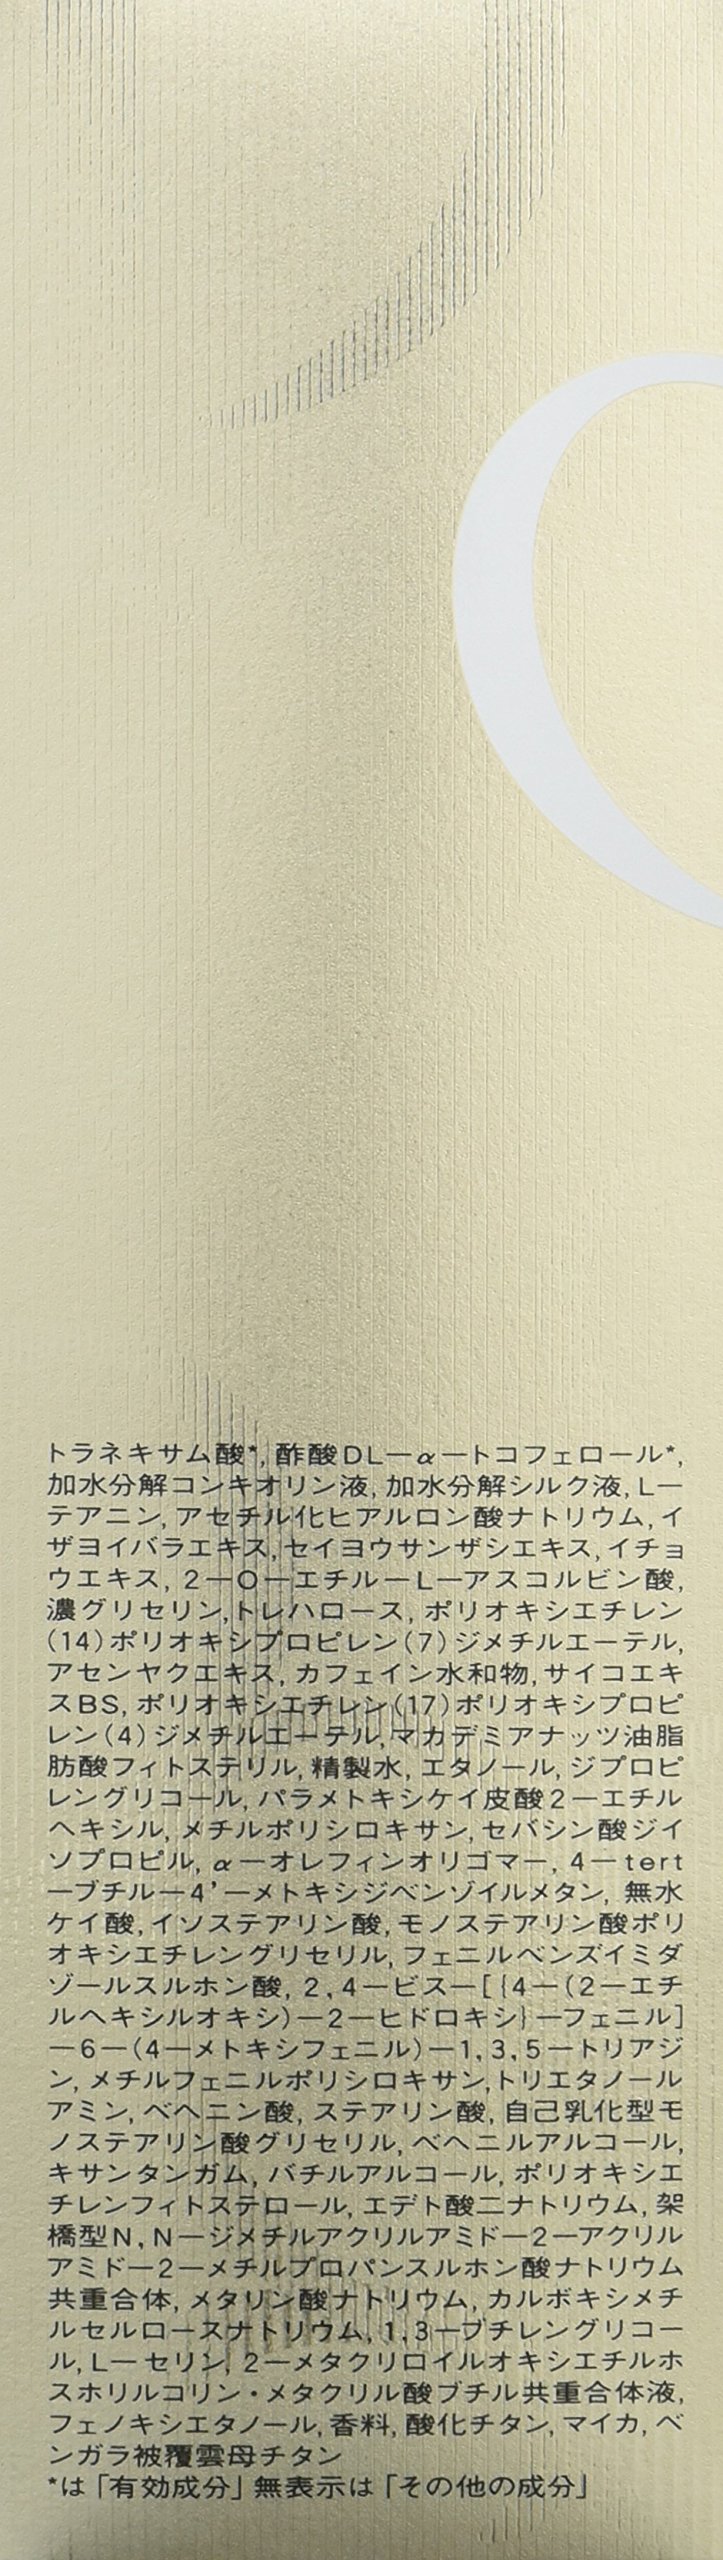 トラネキサム酸*, 酢酸DL－α－トコフェロール*,
加水分解コンキオリン液, 加水分解シルク液, L－
テアニン, アセチル化ヒアルロン酸ナトリウム, イ
ザヨイバラエキス, セイヨウサンザシエキス, イチョ
ウエキス, 2－O－エチル－L－アスコルビン酸,
濃グリセリン, トレハロース, ポリオキシエチレン
(14)ポリオキシプロピレン(7)ジメチルエーテル,
アセンヤクエキス, カフェイン水和物, サイコエキ
スBS, ポリオキシエチレン(17)ポリオキシプロピ
レン(4)ジメチルエーテル, マカデミアナッツ油脂
肪酸フィトステリル, 精製水, エタノール, ジプロピ
レングリコール, パラメトキシケイ皮酸2－エチル
ヘキシル, メチルポリシロキサン, セバシン酸ジイ
ソプロピル, α－オレフィンオリゴマー, 4－tert
－ブチル－4'－メトキシジベンゾイルメタン, 無水
ケイ酸, イソステアリン酸, モノステアリン酸ポリ
オキシエチレングリセリル, フェニルベンズイミダ
ゾールスルホン酸, 2,4－ビス－[{4－(2－エチ
ルヘキシルオキシ)－2－ヒドロキシ}－フェニル]
－6－(4－メトキシフェニル)－1,3,5－トリアジ
ン, メチルフェニルポリシロキサン, トリエタノール
アミン, ベヘニン酸, ステアリン酸, 自己乳化型モ
ノステアリン酸グリセリル, ベヘニルアルコール,
キサンタンガム, バチルアルコール, ポリオキシエ
チレンフィトステロール, エデト酸二ナトリウム, 架
橋型N, N－ジメチルアクリルアミド－2－アクリル
アミド－2－メチルプロパンスルホン酸ナトリウム
共重合体, メタリン酸ナトリウム, カルボキシメチ
ルセルロースナトリウム, 1,3－ブチレングリコー
ル, L－セリン, 2－メタクリロイルオキシエチルホ
スホリルコリン・メタクリル酸ブチル共重合体液,
フェノキシエタノール, 香料, 酸化チタン, マイカ, ベ
ンガラ被覆雲母チタン
*は「有効成分」無表示は「その他の成分」